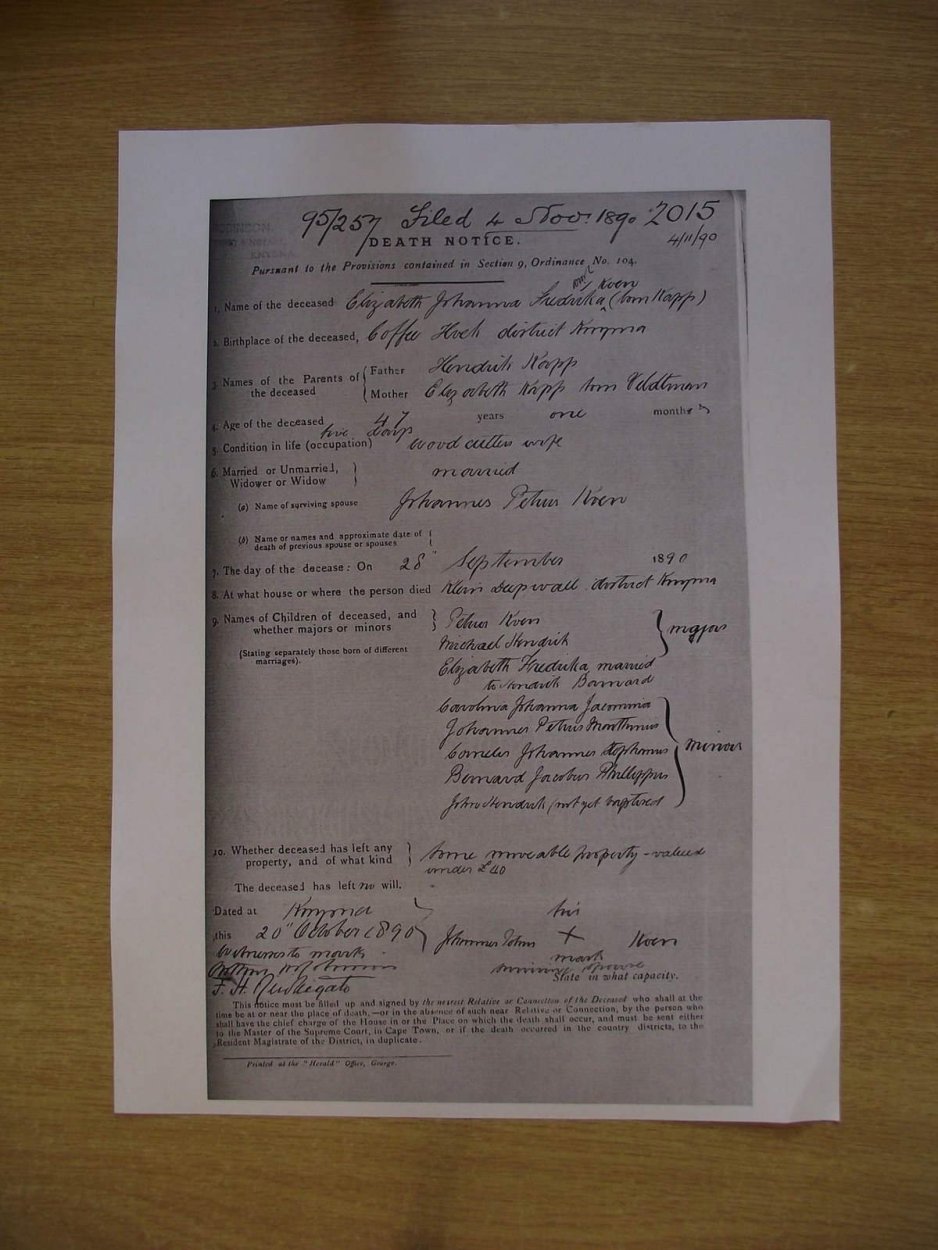 95/257 Filed 4 Nov. 1890 2015
4/11/90
DEATH NOTICE.
Pursuant to the Provisions contained in Section 9, Ordinance No. 104.
Koen
1, Name of the deceased Elizabeth Johanna Fredrika (born Kapp)
2. Birthplace of the deceased, Coffee Hoek district Knysna
3. Names of the Parents of the deceased { Father Hendrik Kapp
Mother Elizabeth Kapp born Veldtman
4. Age of the deceased 47 years one months
days
5. Condition in life (occupation) wood cutters wife
6. Married or Unmarried, Widower or Widow } married
(a) Name of surviving spouse Johannes Petrus Koen
(b) Name or names and approximate date of death of previous spouse or spouses {
7. The day of the decease: On 28" September 1890
8. At what house or where the person died Klein Deepwall district Knysna
9. Names of Children of deceased, and whether majors or minors } Petrus Koen
Michael Hendrik } majors
(Stating separately those born of different marriages).
Elizabeth Fredrika married
to Hendrik Barnard
Carolina Johanna Jacomina
Johannes Petrus Marthinus
Cornelis Johannes Stephanus } minors
Bernard Jacobus Phillippus
John Hendrik (not yet baptised
10. Whether deceased has left any property, and of what kind } Some moveable property - valued
under £40
The deceased has left no will.
Dated at Knysna
this 20" October 1890
his
Johannes Petrus X Koen
mark
Witnesses to mark
surviving spouse
State in what capacity.
F. H.
This notice must be filled up and signed by the nearest Relative or Connection of the Deceased who shall at the
time be at or near the place of death,—or in the absence of such near Relative or Connection, by the person who
shall have the chief charge of the House in or the Place on which the death shall occur, and must be sent either
to the Master of the Supreme Court, in Cape Town, or if the death occurred in the country districts, to the
Resident Magistrate of the District, in duplicate.
Printed at the "Herald" Office, George.